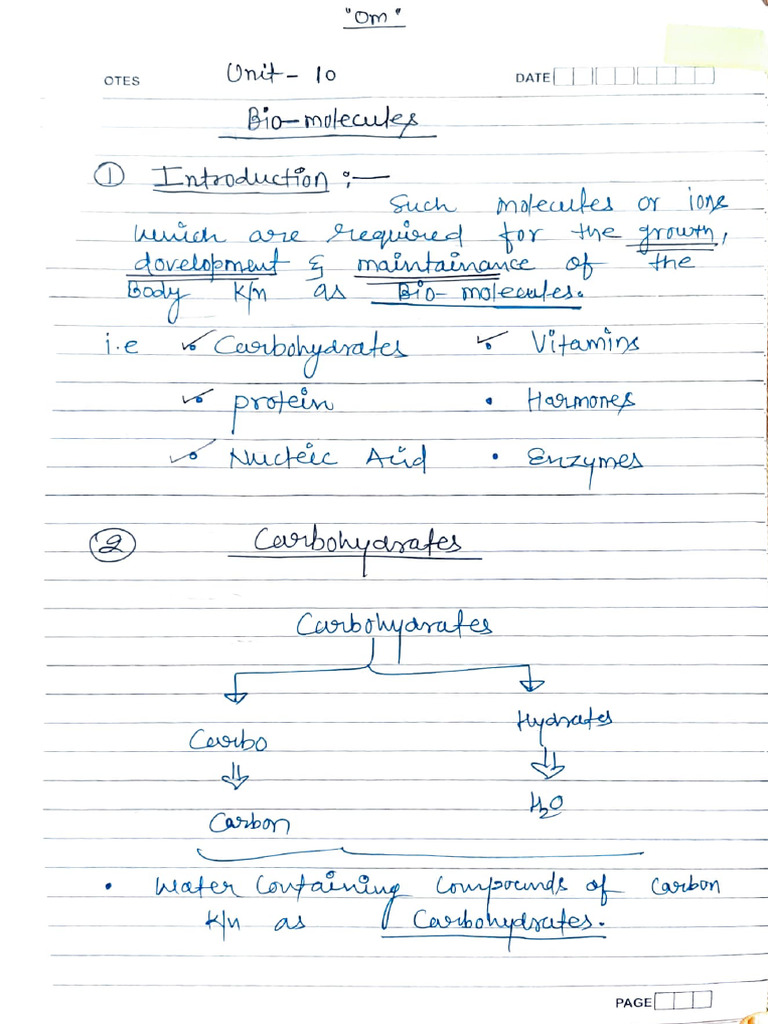 "Om"
OTES Unit - 10 DATE
Bio-molecules
① Introduction :—
Such molecules or ions
which are required for the growth,
dovelopment & maintainance of the
Body k/n as Bio-molecules.
i.e Carbohydrates Vitamins
protein • Harmones
Nucleic Acid • Enzymes
② Carbohydrates
Carbohydrates
Carbo Hydrates
Carbon H2O
• Water Containing Compounds of Carbon
k/n as Carbohydrates.
PAGE